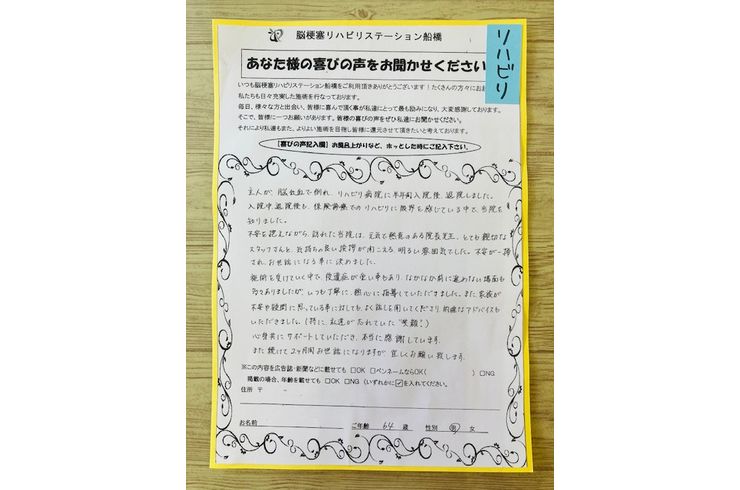 脳梗塞リハビリステーション船橋
リハビリ
あなた様の喜びの声をお聞かせください
いつも脳梗塞リハビリステーション船橋をご利用頂きありがとうございます！たくさんの方々にお
私たちも日々充実した施術を行なっております。
毎日、様々な方と出会い、皆様に喜んで頂く事が私達にとって最も励みになり、大変感謝しております。
そこで、皆様に一つお願いがあります。皆様の喜びの声をぜひ私達にお聞かせください。
それにより私達もまた、よりよい施術を目指し皆様に還元させて頂きたいと考えております。
【喜びの声記入欄】お風呂上がりなど、ホッとした時にご記入下さい。
主人が、脳出血で倒れ、リハビリ病院に半年間入院後、退院しました。
入院中、退院後も、保険診療でのリハビリに限界を感じている中で、当院を
知りました。
不安を抱えながら、訪れた当院は、元気で熱意のある院長先生、とても親切な
スタッフさんと、気持ちの良い挨拶が聞こえる、明るい雰囲気でした。不安が一掃
され、お世話になる事に決めました。
施術を受けていく中で、後遺症が重い事もあり、なかなか前に進めない場面も
多々ありましたが、いつも丁寧に、熱心に指導していただきました。また家族が
不安や疑問に思っている事に対しても、よく話しを聞いてくださり、的確なアドバイスも
いただきました。(特に、私達がたれていた
心身共にサポートしていただき、本当に感謝しています。
また続けて2ヶ月間お世話になりますが、宜しくお願い致します。
※この内容を広告誌・新聞などに載せても □OK □ペンネームならOK( ) □NG
掲載の場合、年齢を載せても □OK □NG (いずれかに☑を入れてください。
住所 〒 －
お名前 ご年齢 64 歳 性別 男 女